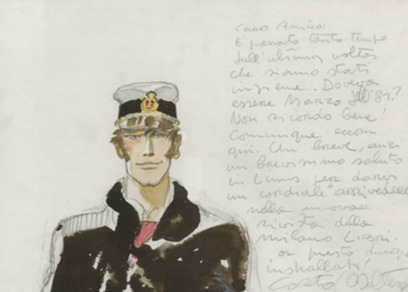 Caro Amico
È passato tanto tempo
dall'ultima volta
che siamo stati
insieme. Doveva
essere Marzo dell'81?
Non ricordo bene!
Comunque eccomi
qui. Un breve, anzi
un brevissimo saluto
in Linus per darvi
un cordiale arrivederci
nella nuova
rivista della
Milano Libri.
questo
Corto Maltese